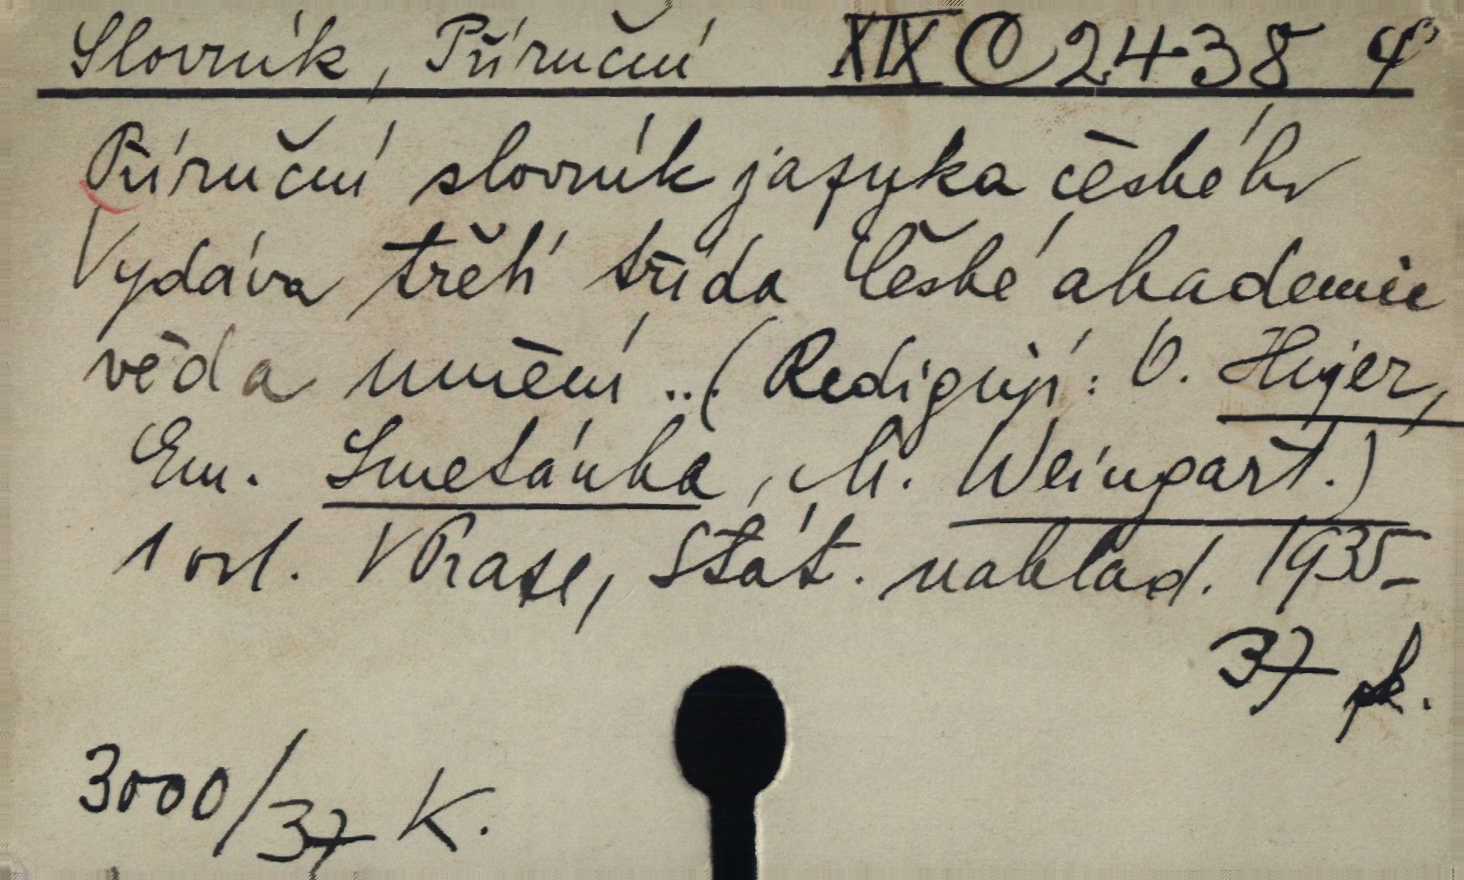 Slovník, Příruční XIX C 2438 4°
Příruční slovník jazyka českého
Vydává třetí třída České akademie
věd a umění ... (Redigují: O. Hujer,
Em. Smetánka, M. Weingart.)
1 vol. V Praze, Stát. naklad. 1935-
37 pk.
3000/37 K.